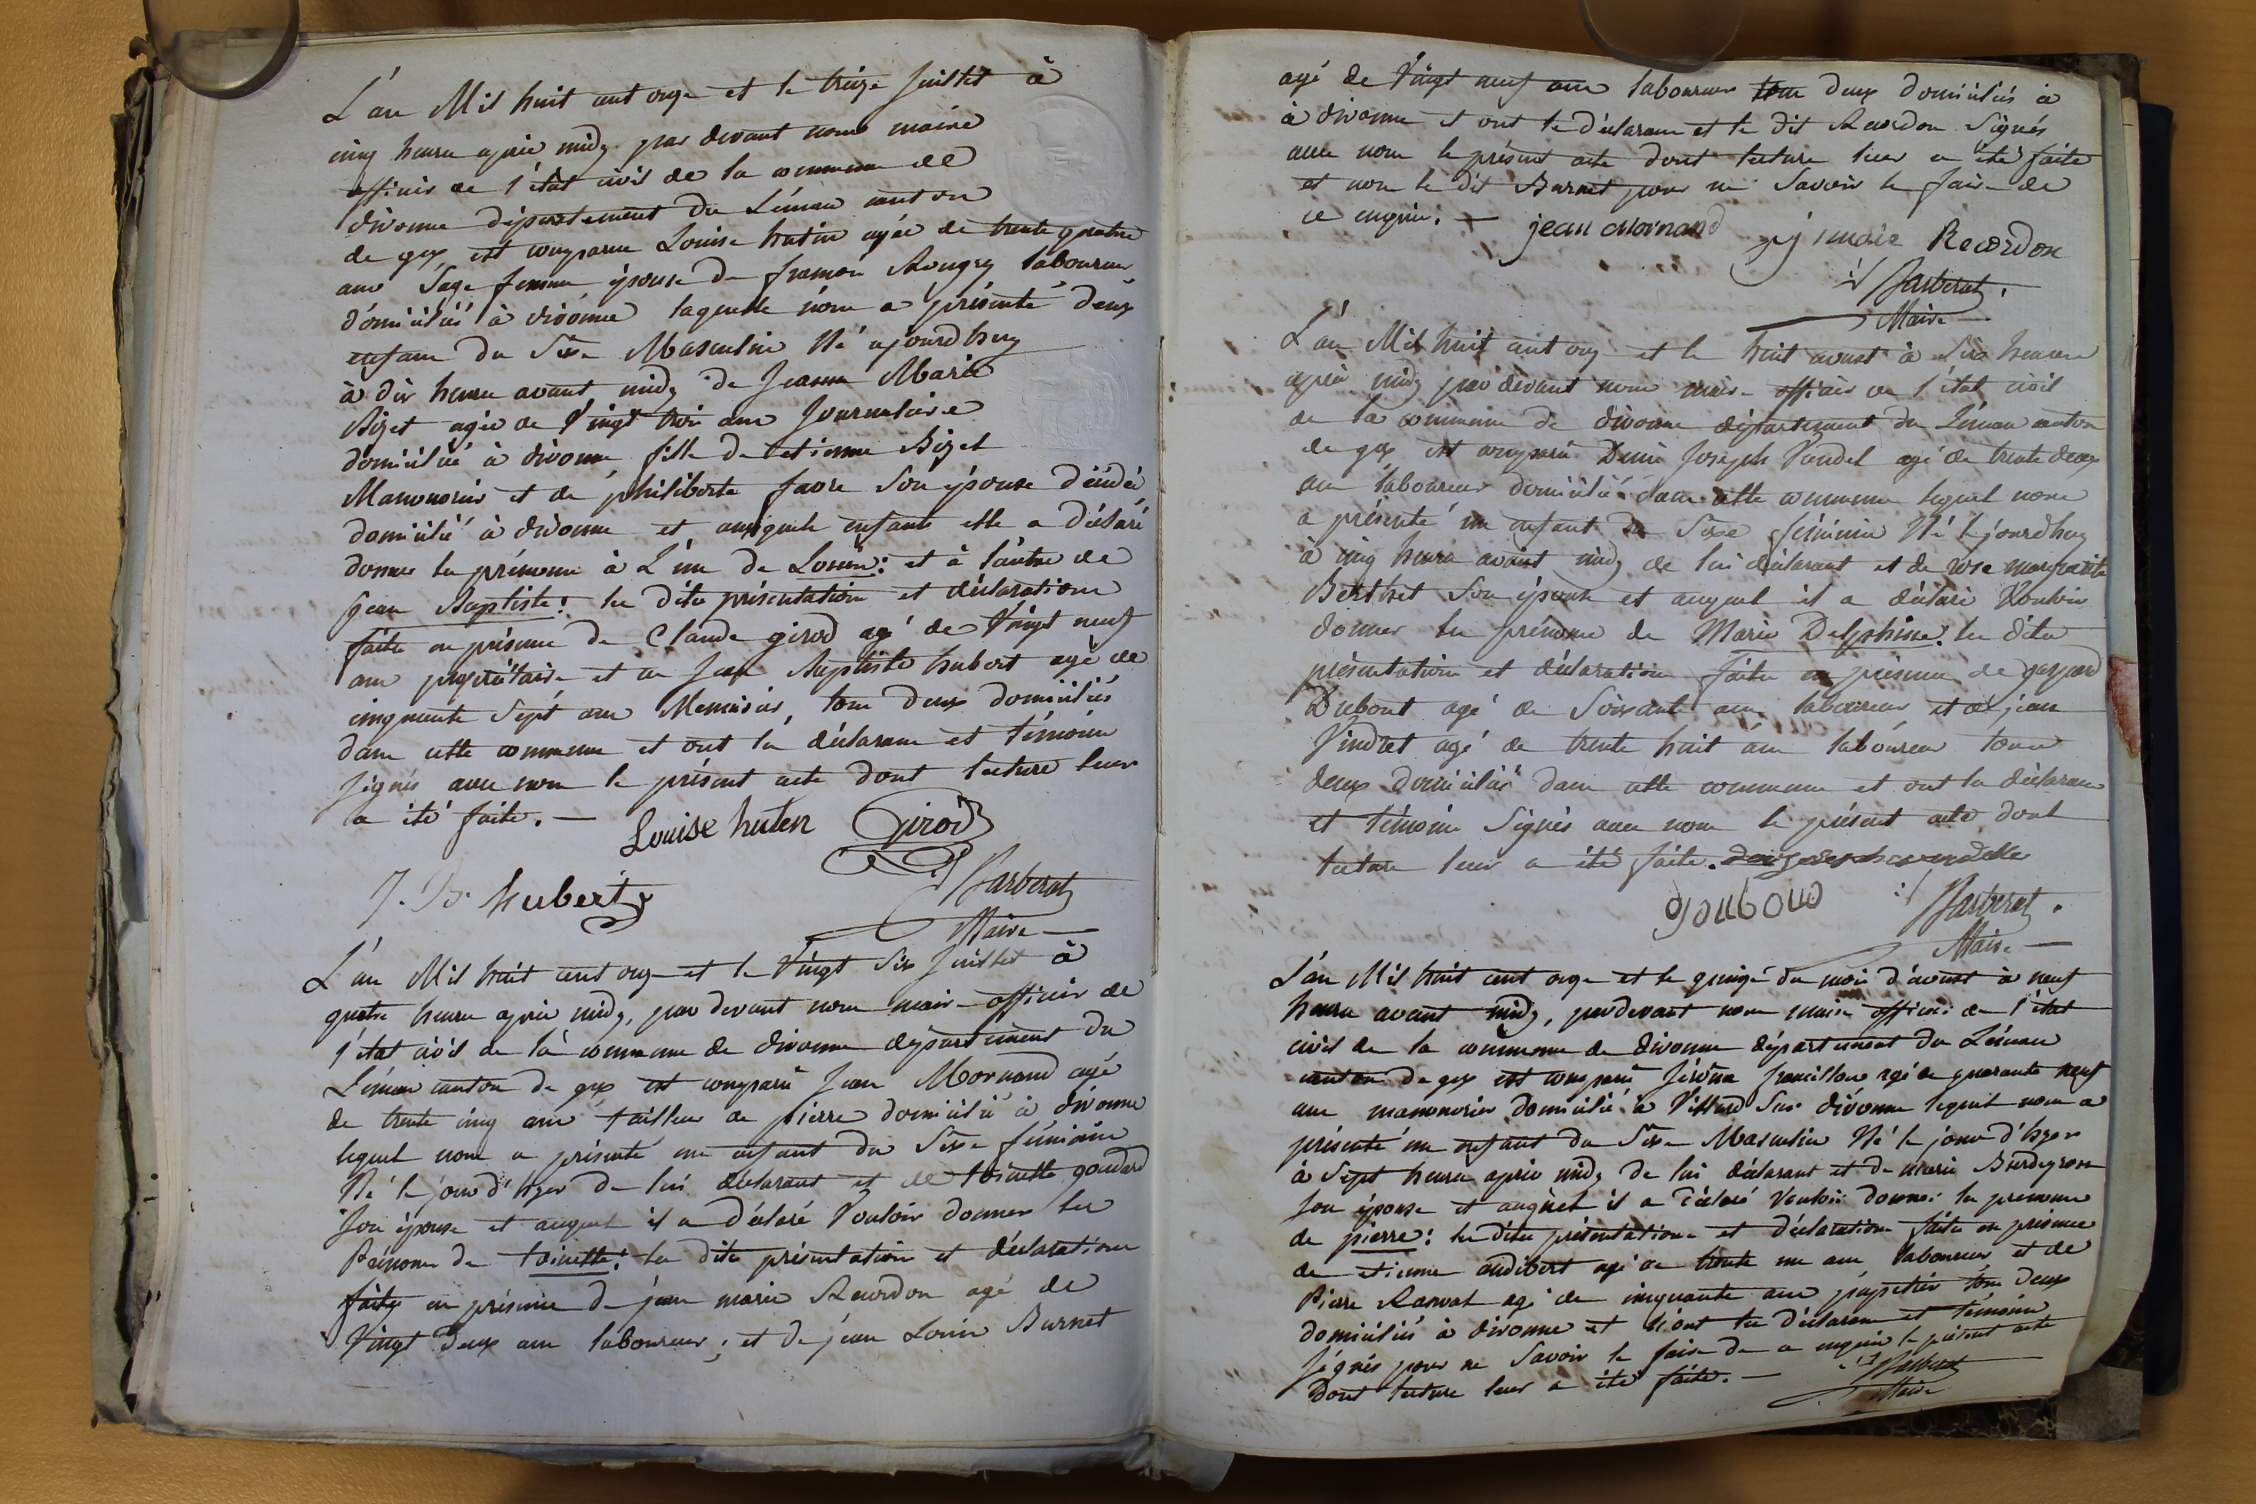 L'an Mil huit cent onze et le treize Juillet à
cinq heures après midy par devant nous maire
officier de l'état civil de la commune de
divonne département du Léman canton
de gex est comparue Louise hutin agée de trente quatre
ans Sage femme épouse de françois Rougey laboureur
domiciliés à divonne laquelle nous a présenté deux
enfans du Sexe Masculin Né ajourd'huy
à dix heures avant midy de Jeanne Marie
Bizet agée de Vingt trois ans Journalière
domiciliée à divonne fille de etienne Bizet
Manouvrier et de philiberte favre Son épouse décédée
domicilié à divonne et auxquels enfants elle a déclaré
donner les prénoms à L'un de Louis: et à l'autre de
Jean Baptiste: les dites présentation et déclaration
faites en présence de Claude girod agé de Vingt neuf
ans propriétaire et de Jean Baptiste hubert agé de
cinquante Sept ans Menuisier, tous deux domiciliés
dans cette commune et ont les déclarans et témoins
Signés avec nous le présent acte dont lecture leur
a été faite. —
Louise huten Girod
J. B. hubert
Barberat
Maire
L'an Mil huit cent onze et le Vingt Six Juillet à
quatre heures après midy, par devant nous maire officier de
l'état civil de la commune de divonne département du
Léman canton de gex est comparu Jean Mornand agé
de trente cinq ans tailleur de pierre domicilié à divonne
lequel nous a présenté un enfant du Sexe féminin
Né le jour d'hyer de lui déclarant et de toinette goudard
Son épouse et auquel il a déclaré Vouloir donner les
Prénoms de toinette: les dites présentation et déclaration
faites en présence de jean marie Recordon agé de
Vingt deux ans laboureur; et de jean Louis Burnet
agé de Vingt neuf ans laboureur tous deux domiciliés à
à divonne et ont le déclarant et le dit Recordon Signés
avec nous le présent acte dont lecture leur a été faite
et non le dit Burnet pour ne Savoir le faire de
ce enquis: — jean Mornand
j marie Recordon
Barberat
Maire
L'an Mil huit cent onze et le huit aoust à Six heures
après midy par devant nous maire officier de l'état civil
de la commune de divonne département du Léman canton
de gex est comparu Denis Joseph Vandel agé de trente deux
ans laboureur domicilié dans cette commune lequel nous
a présenté un enfant du Sexe féminin Né le jourd'huy
à cinq heures avant midy de lui déclarant et de rose marguerite
Berthet Son épouse et auquel il a déclaré Vouloir
donner les prénoms de Marie Delphine: les dites
présentation et déclaration faites en présence de gaspard
Dubout agé de Soixante ans laboureur et de jean
Vindret agé de trente huit ans laboureur tous
deux domiciliés dans cette commune et ont les déclarans
et témoins Signés avec nous le présent acte dont
lecture leur a été faite.
Barberat
Maire
L'an Mil huit cent onze et le quinze du mois d'aoust à neuf
heures avant midy, pardevant nous maire officier de l'état
civil de la commune de divonne département du Léman
canton de gex est comparu Jérôme francillon agé de quarante neuf
ans manouvrier domicilié à Villard Sur divonne lequel nous a
présenté un enfant du Sexe Masculin Né le jour d'hyer
à Sept heures après midy de lui déclarant et de marie Burdeyron
Son épouse et auquel il a déclaré Vouloir donner les prenoms
de pierre: les dites présentation et déclaration faites en présence
de etienne audibert agé de trente un ans laboureur et de
Pierre agé de cinquante ans papetier tous deux
domiciliés à divonne et n'ont les déclarans et témoins
Signés pour ne Savoir le faire de ce enquis le présent acte
Dont lecture leur a été faite. —
Barberat
Maire